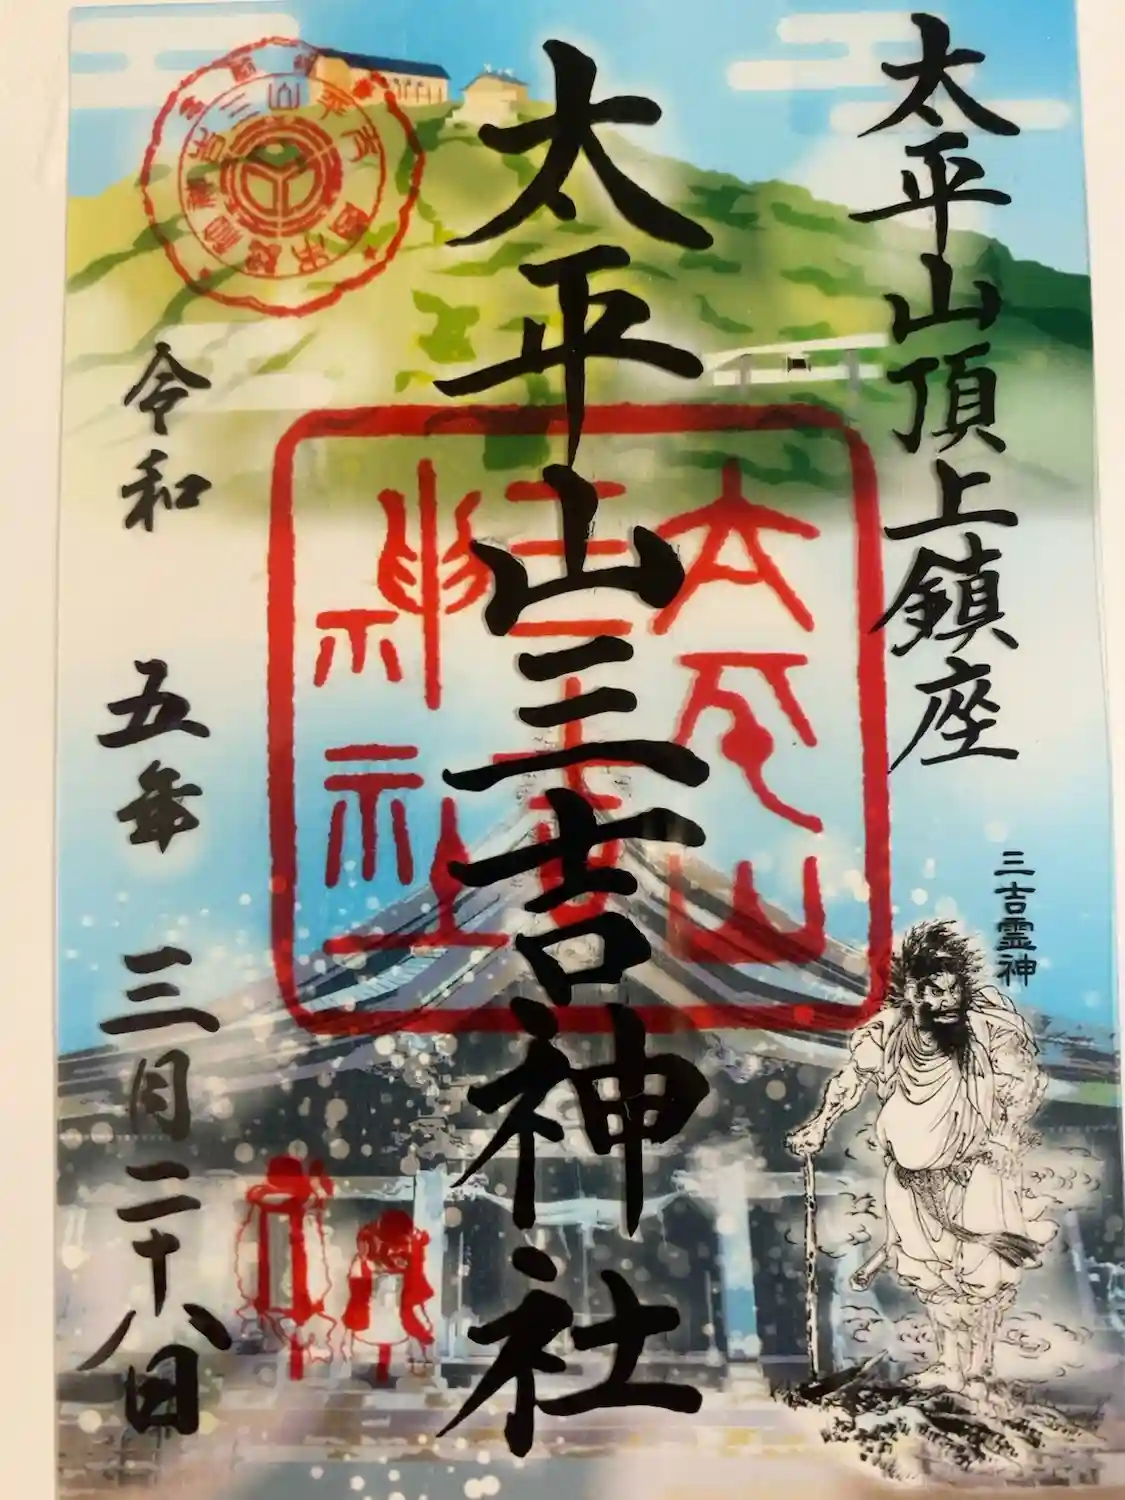 太平山頂上鎮座
三吉霊神
太平山三吉神社
太平山
三吉
神社
令和 五年 三月二十八日